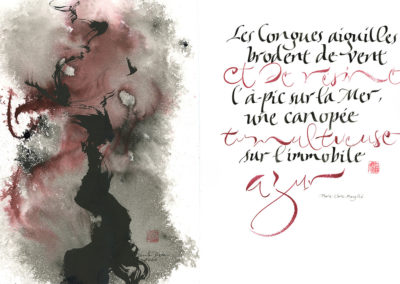 Les longues aiguilles
brodent de vent
et de résine
l'à-pic sur la Mer,
une canopée
tumultueuse
sur l'immobile
azur